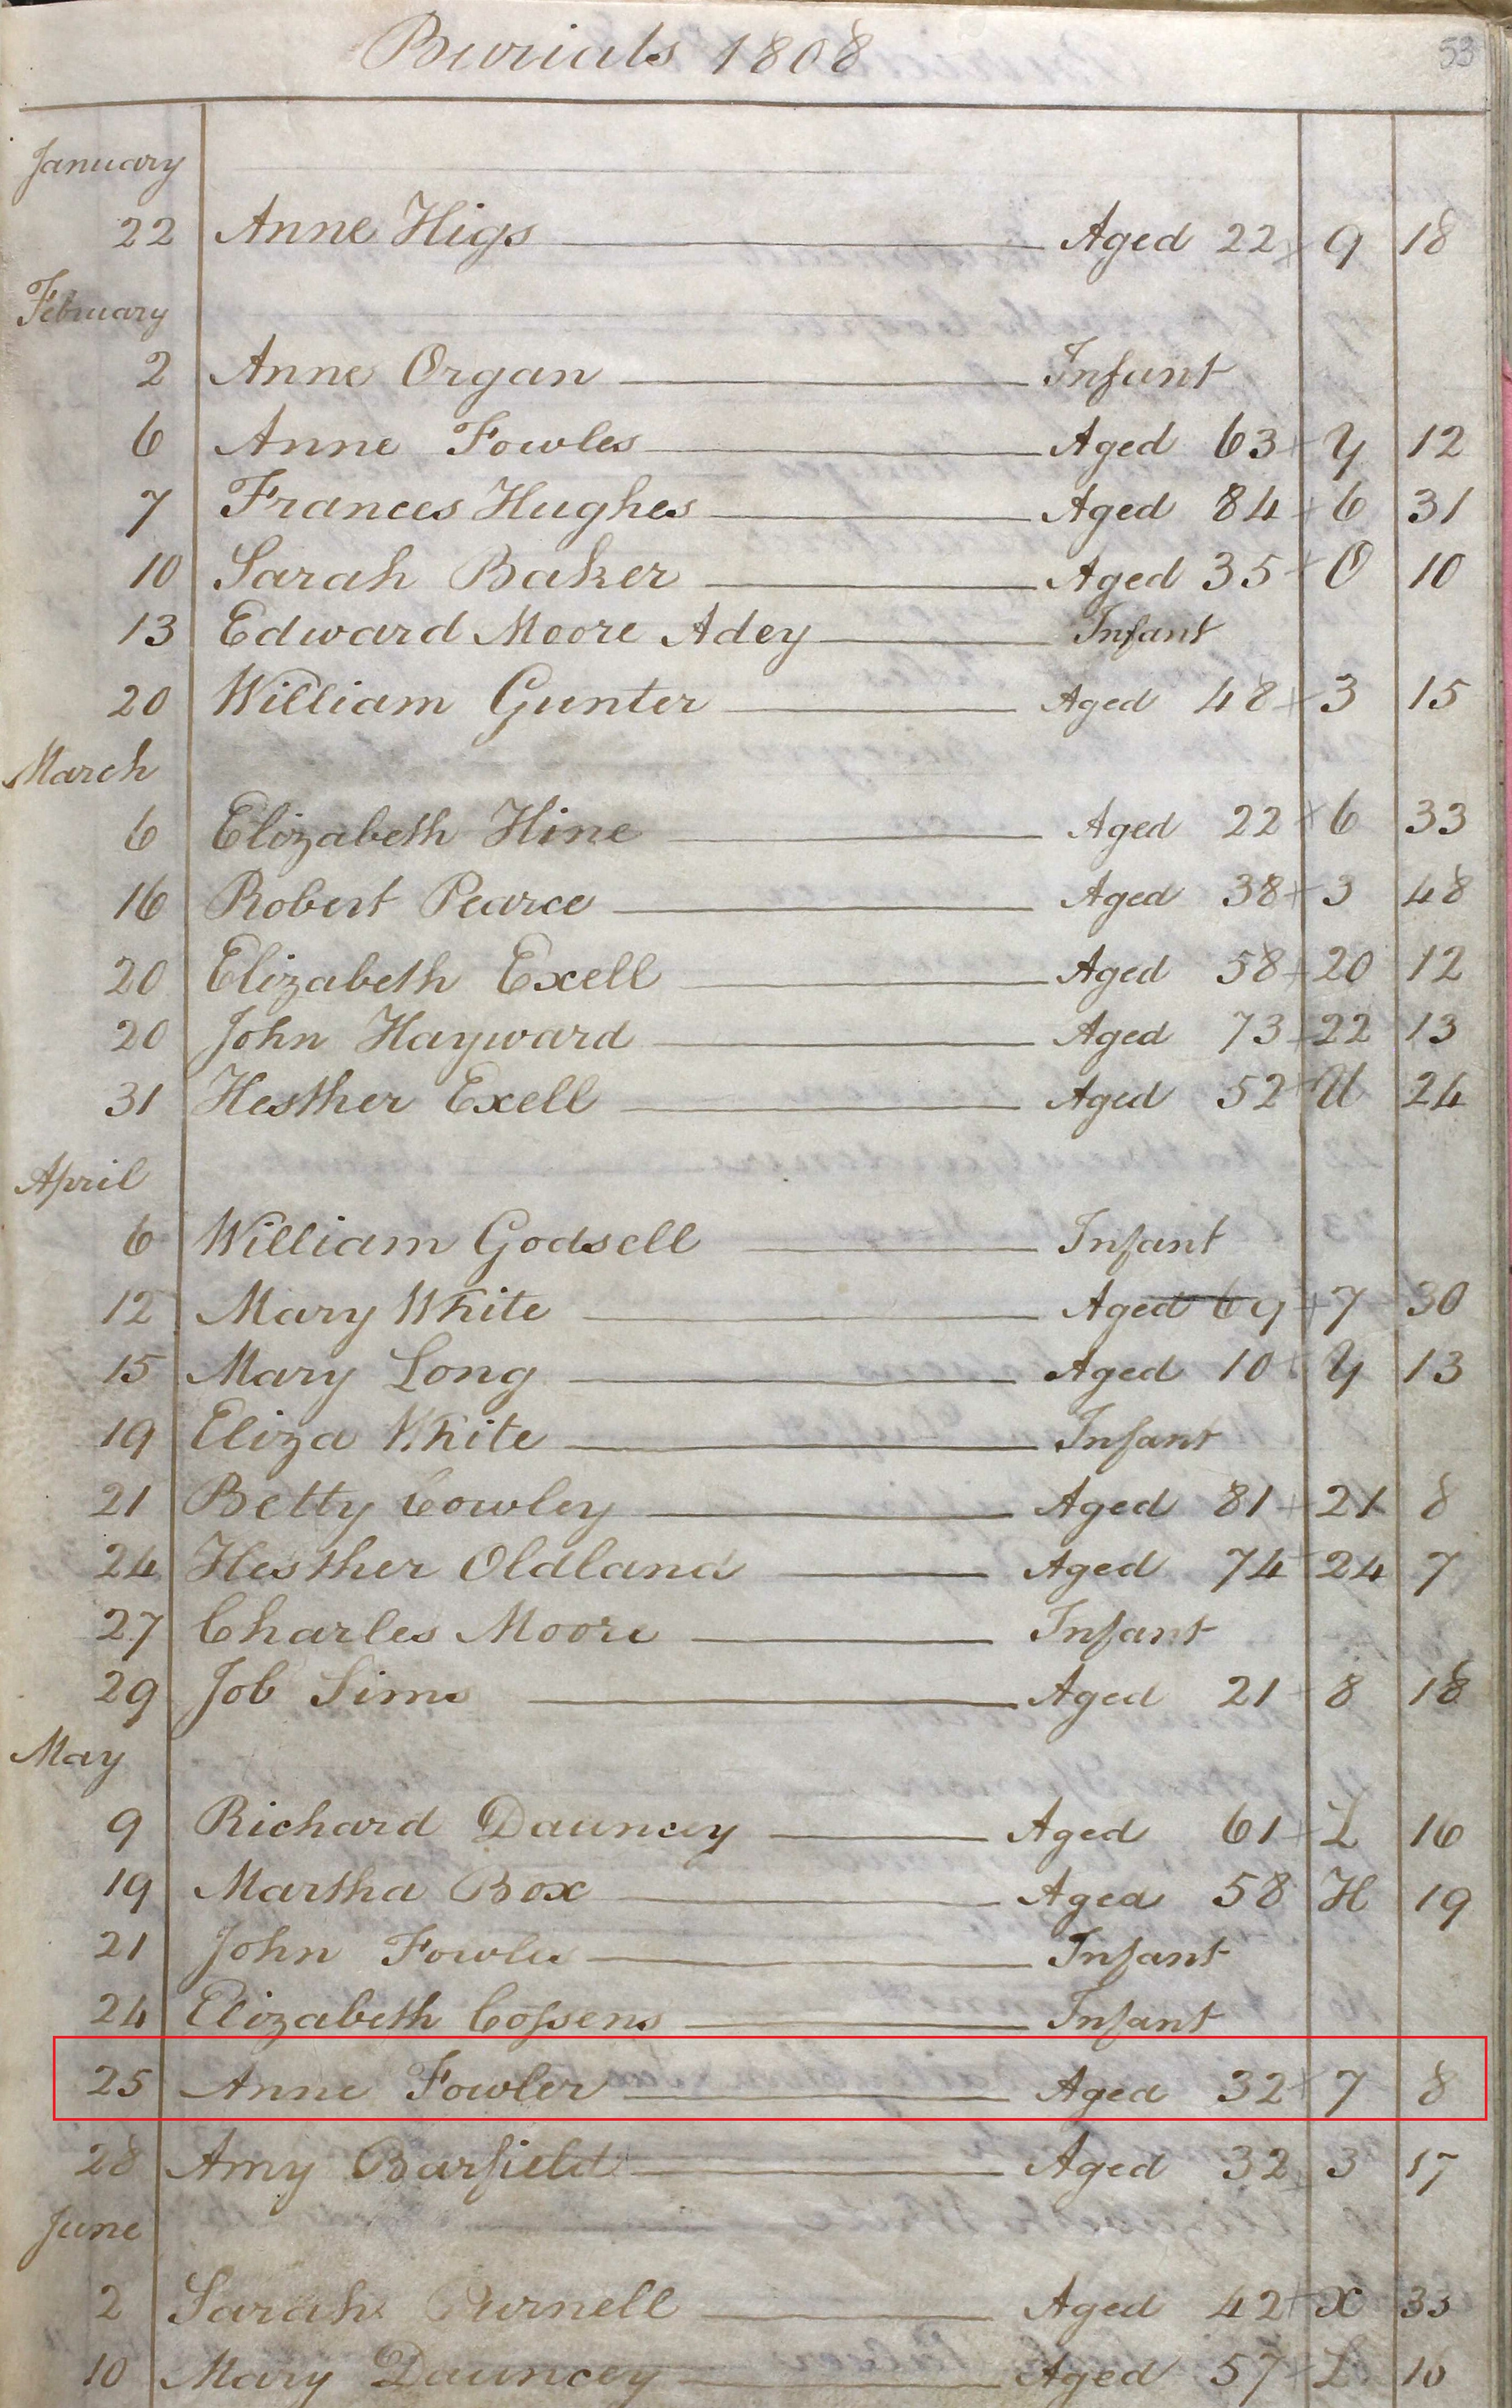 Burials 1808
53
January
22 Anne Higs Aged 22 9 18
February
2 Anne Organ Infant
6 Anne Fowles Aged 63 Y 12
7 Frances Hughes Aged 84 6 31
10 Sarah Baker Aged 35 O 10
13 Edward Moore Adey Infant
20 William Gunter Aged 48 3 15
March
6 Elizabeth Hine Aged 22 6 33
16 Robert Pearce Aged 38 3 48
20 Elizabeth Exell Aged 58 20 12
20 John Hayward Aged 73 22 13
31 Hesther Exell Aged 52 U 24
April
6 William Godsell Infant
12 Mary White Aged 69 7 30
15 Mary Long Aged 10 Y 13
19 Eliza White Infant
21 Betty Cowley Aged 81 21 8
24 Hesther Oldland Aged 74 24 7
27 Charles Moore Infant
29 Job Sims Aged 21 8 18
May
9 Richard Dauncey Aged 61 L 16
19 Martha Box Aged 58 H 19
21 John Fowler Infant
24 Elizabeth Cossens Infant
25 Anne Fowler Aged 32 7 8
28 Amy Barfield Aged 32 3 17
June
2 Sarah Purnell Aged 42 X 33
10 Mary Dauncey Aged 57 L 16